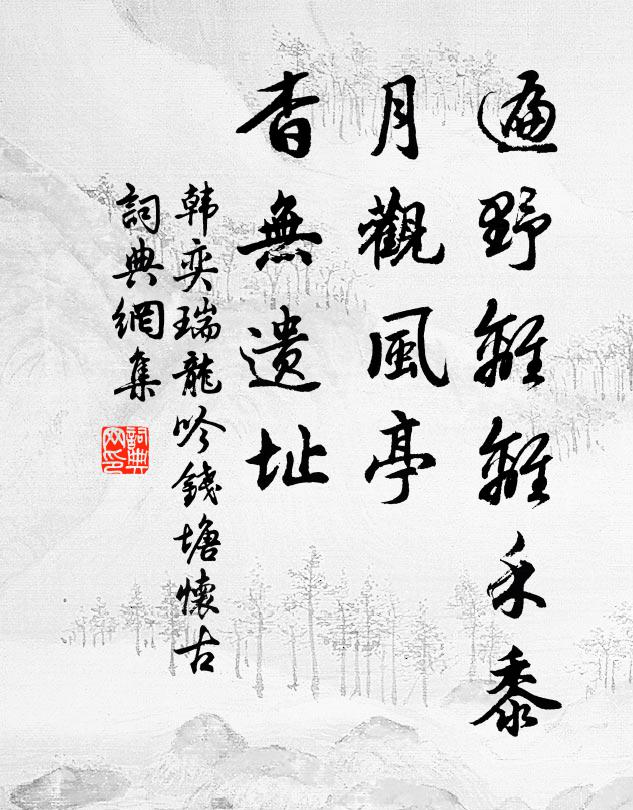 遍野離離禾黍
月觀風亭
杳無遺址
韩奕瑞龍吟錢塘懷古
詞典網集
詞典
网印